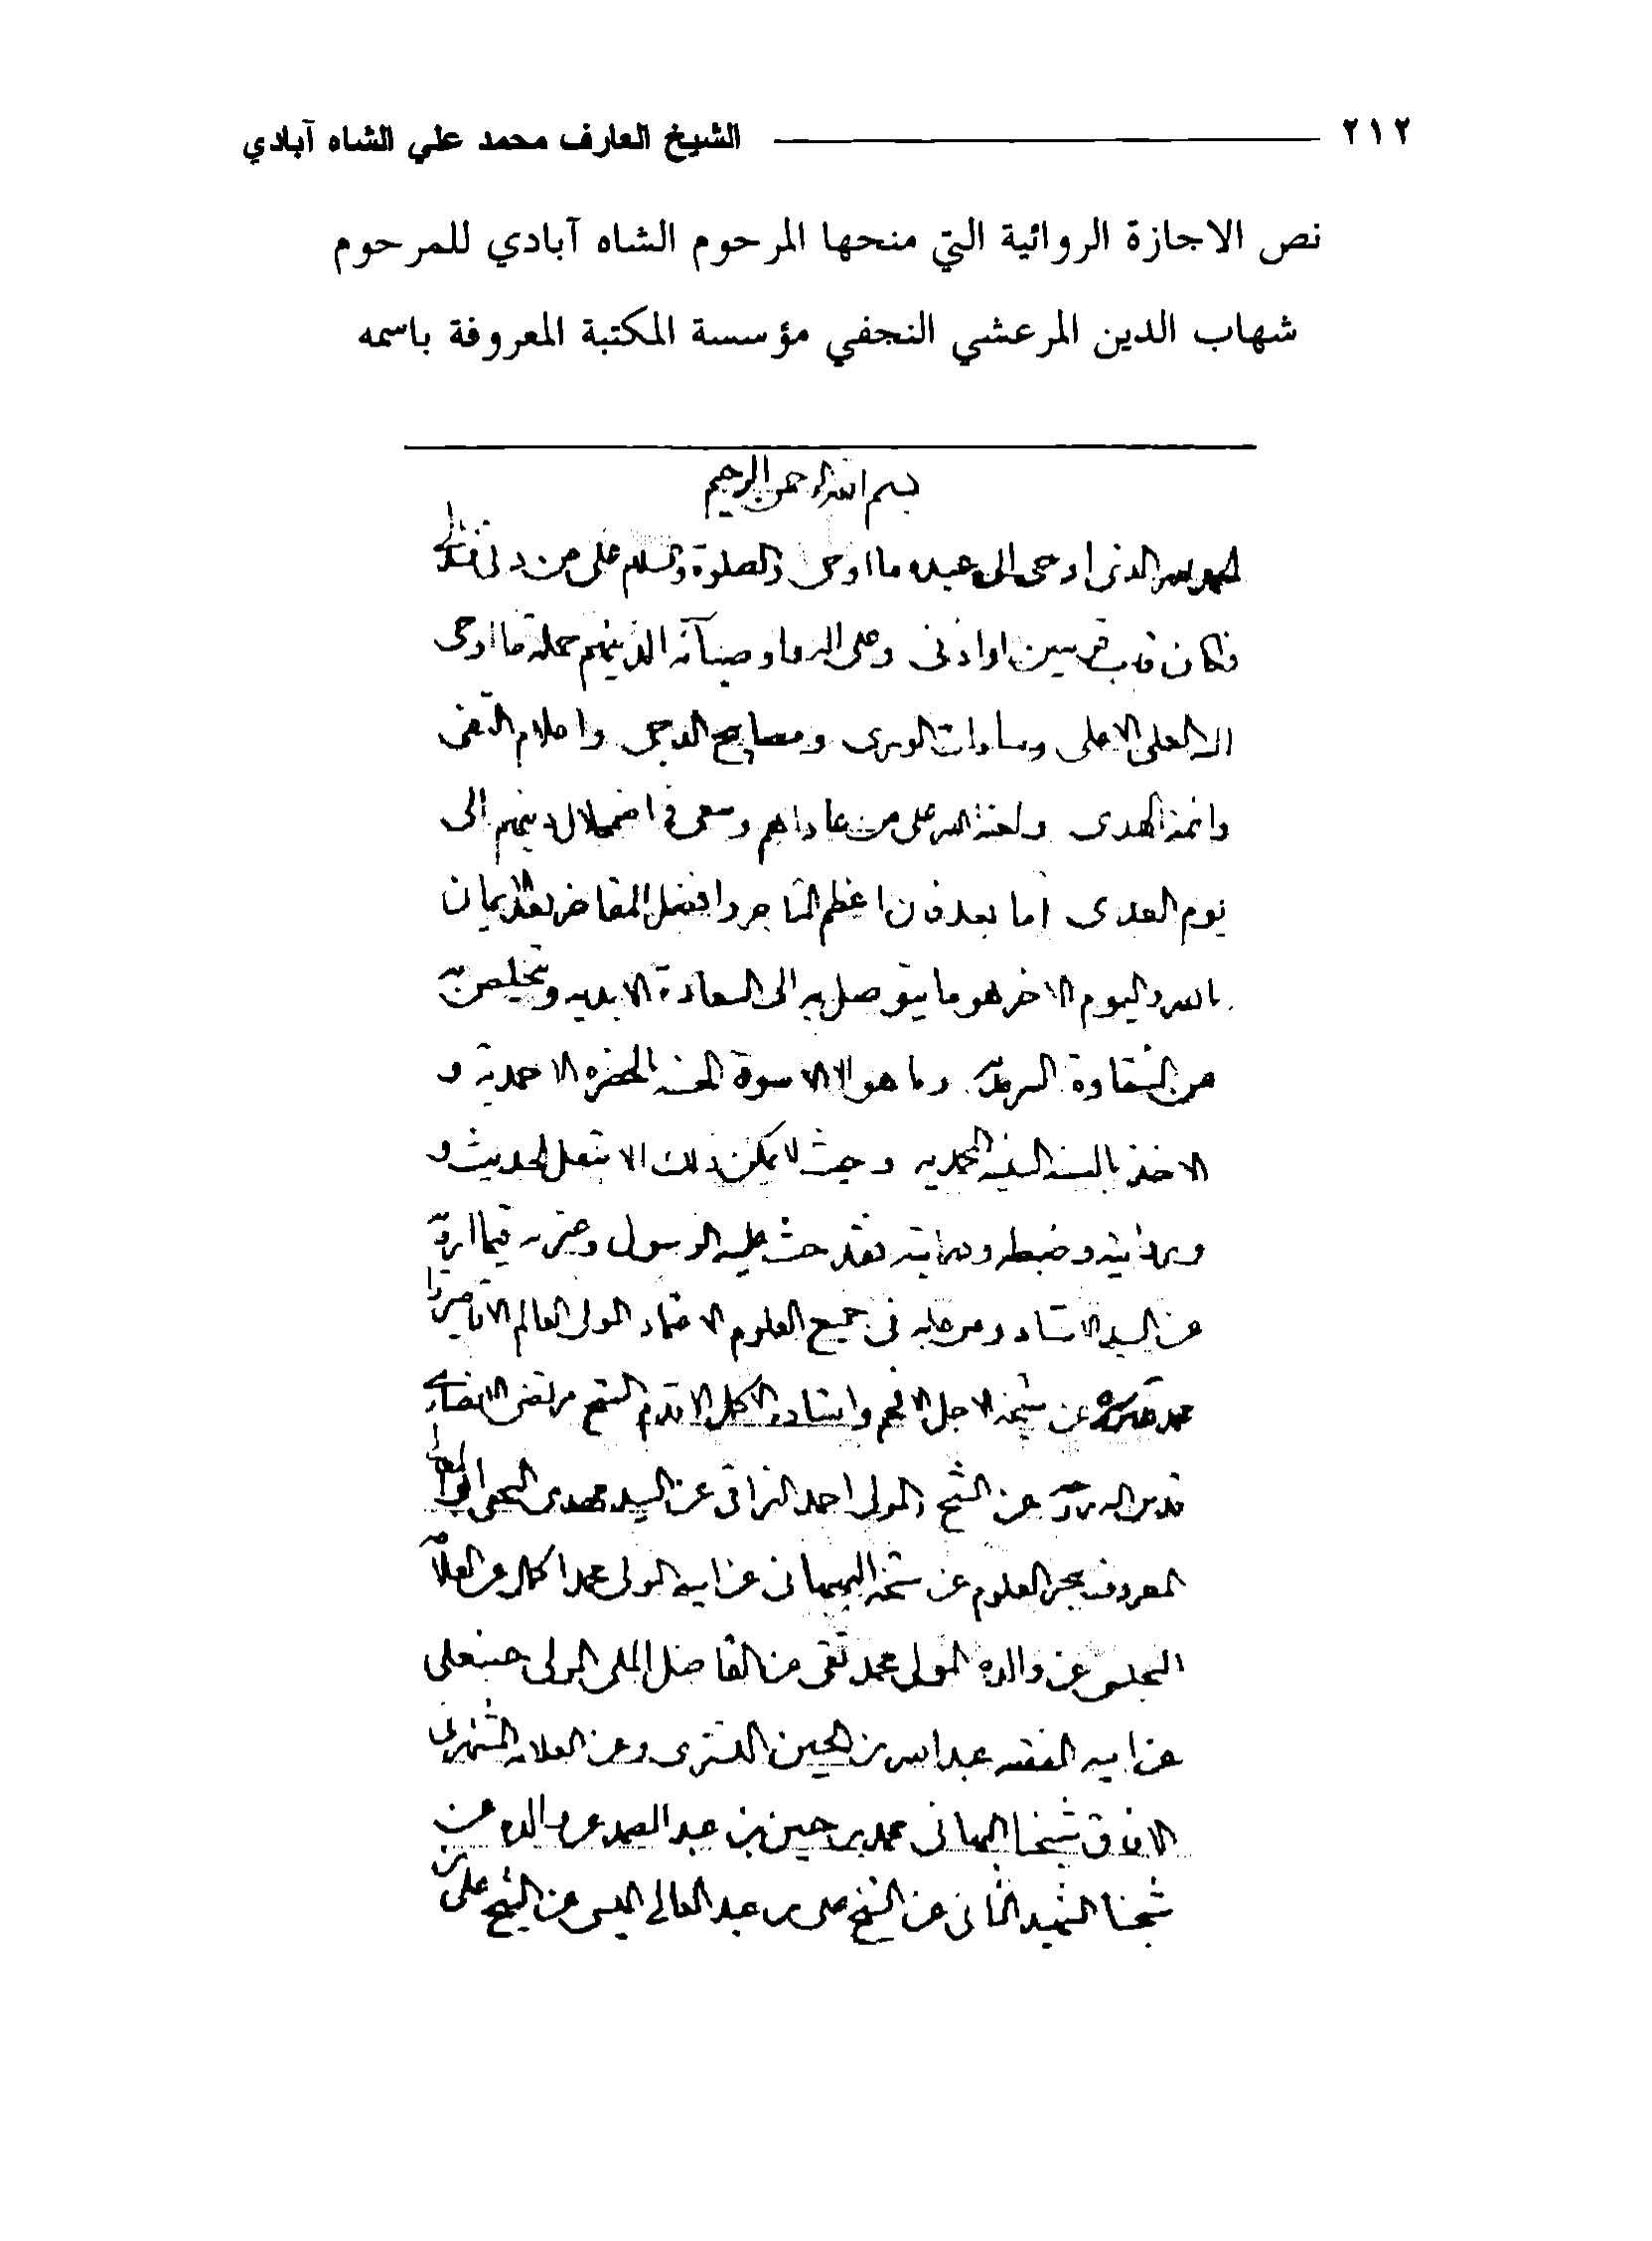 ٢١٢ الشيخ العارف محمد علي الشاه آبادي
نص الاجازة الروائية التي منحها المرحوم الشاه آبادي للمرحوم
شهاب الدين المرعشي النجفي مؤسسة المكتبة المعروفة باسمه
بسم الله الرحمن الرحيم
الحمد لله الذي اوحى الى عبده ما اوحى والصلوة والسلام على من دنى فتدلى
فكان قاب قوسين او ادنى وعلى اله واوصيآئه الذينهم حملة ما اوحى
اله العلى الاعلى وسادات الورى ومصابيح الدجى واعلام التقى
وائمة الهدى ولعنة الله على من عاداهم وسعى في اضمحلال دينهم الى
يوم
اما بعد فان اعظم المتاجر وافضل المفاخر بعد الايمان
بالله واليوم الاخر هو ما يتوصل به الى السعادة الابديه ويتخلص به
من الشقاوة السرمديه وما هو الا الاسوة الحسنه بالحضره الاحمدية و
الاخذ بالسنه السنيه المحمديه وحيث لا يمكن ذلك الا بنقل الحديث و
وروايته وضبطه ودرايته فقد حث عليه الرسول وعترته فيما ارويه
عن السيد الاستاد ومن عليه في جميع العلوم الاعتماد المولى العالم الاقا ميرزا
محمد هاشم عن شيخه الاجل الافخم واستاده الاكمل الاقدم الشيخ مرتضى الانصاري
قدس الله عن الشيخ المولى احمد النراقى عن السيد مهدى النجفى
المعروف ببحر العلوم عن شيخه البهبهانى عن ابيه المولى محمد اكمل عن العلامة
المجلسى عن والده المولى محمد تقى عن الفاضل الملى المولى حسنعلى
عن ابيه الفقيه عبد الله بن الحسين التسترى وعن العلامه المشتهر فى
الافاق شيخنا البهائى محمد بن حسين بن عبد الصمد عن والده عن
شيخنا الشهيد الثانى عن الشيخ على بن عبد العالى الميسى عن الشيخ على بن